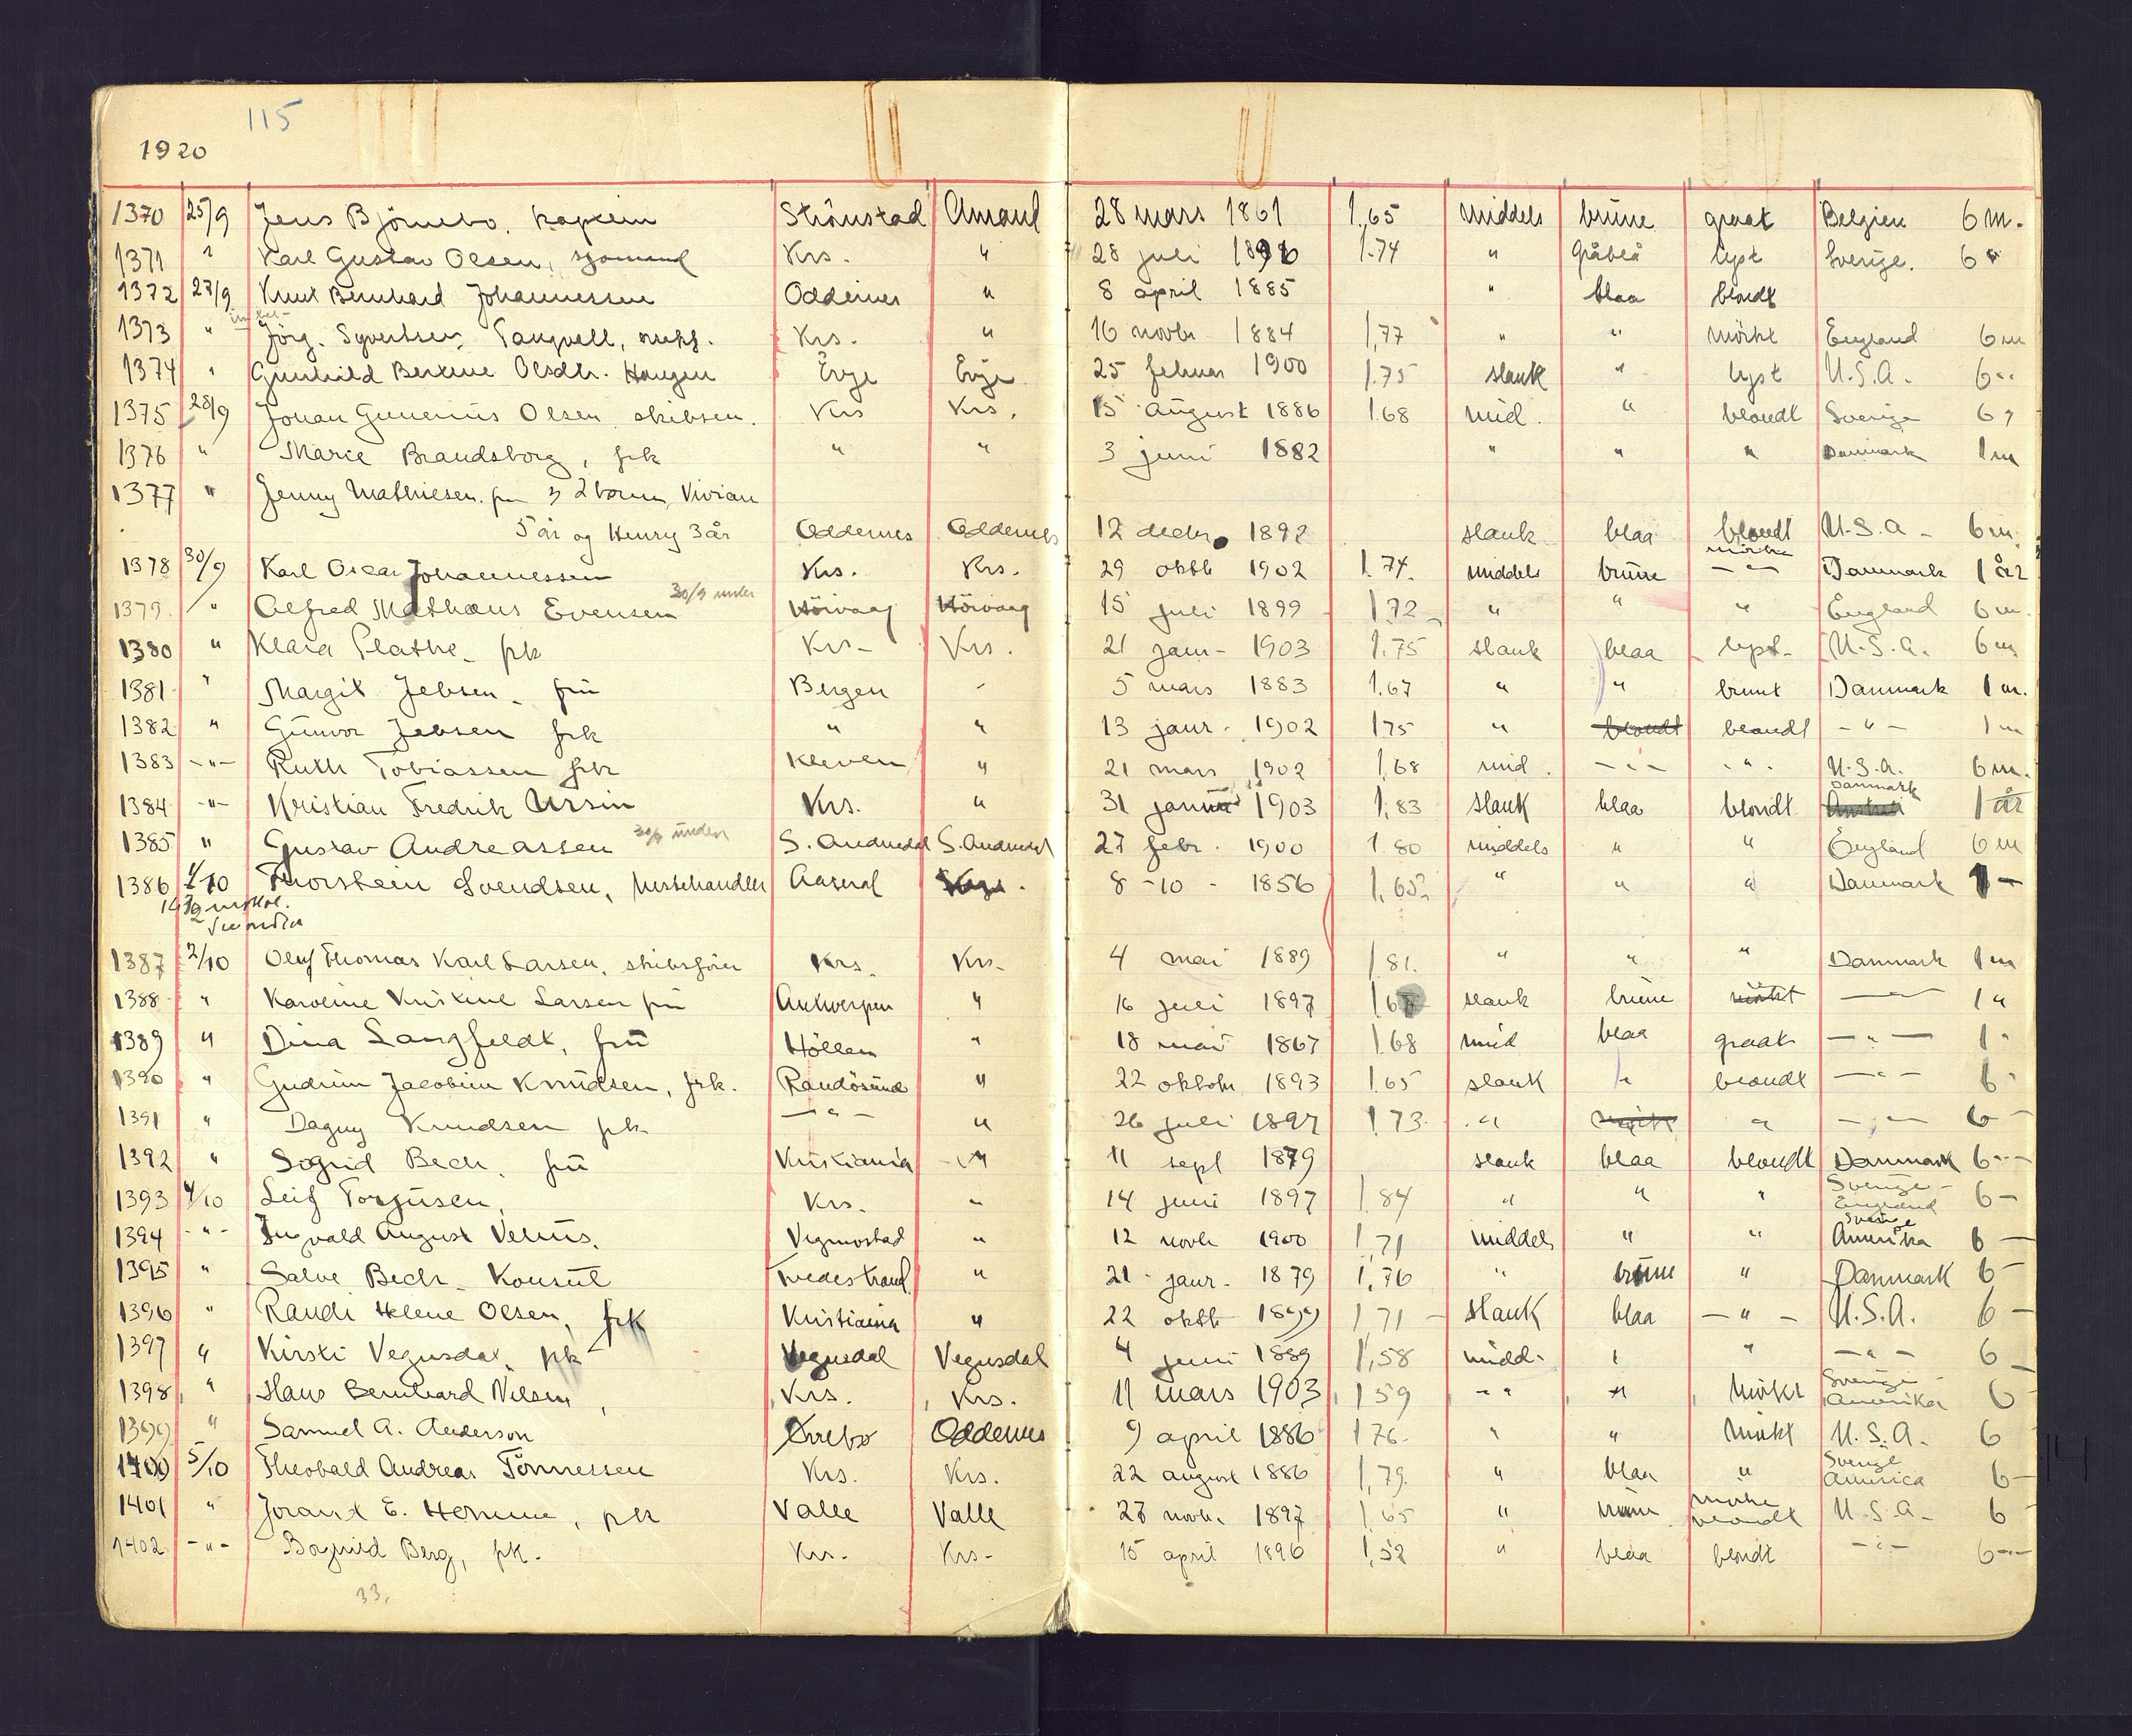 115
1920
1370 25/9 Jens Björnebo, kaptein Strömstad Amand 28 mars 1861 1.65 middels brune graat Belgien 6 m.
1371 " Karl Gustav Olsen, sjømand Krs. " 28 juli 1896 1.74 " gråblå lyst Sverige. 6 "
1372 27/9 Knut Bernhard Johannessen Oddernes " 8 april 1885 " blaa blondt
1373 " Jörg. Syvertsen Tangvall, Krs. " 16 novbr 1884 1,77 " " mörkt England 6 m
1374 " Gunhild Bertine Olsdtr. Haugen Evje Evje 25 februar 1900 1.75 slank " lyst U.S.A. 6 "
1375 28/9 Johan Gunerius Olsen skibsen. Krs Krs. 15 august 1886 1.68 mid. " blondt Sverige 6 "
1376 " Marie Brandsborg, frk " " 3 juni 1882 " " " Danmark 1 m
1377 " Jenny Mathiesen fru 2 barn, Vivian
5 år og Henry 3 år Oddernes Oddernes 12 decbr. 1892 slank blaa blondt U.S.A - 6 m.
1378 30/9 Karl Oscar Johannessen Krs. Krs. 29 oktb 1902 1.74. middels brune mörke - " - Danmark 1 år
1379 " Alfred Mathæus Evensen 30/9 under Hörvaag Hörvaag 15 juli 1899 1.72 " " " England 6 m.
1380 " Klara Plathe - frk Krs - Krs. 21 jan - 1903 1.75 slank blaa lyst - U.S.A. 6 m
1381 " Margit Jebsen - frü Bergen - 5 mars 1883 1.67 " " brunt Danmark 1 m.
1382 " Gunvor Jebsen frk " " 13 janr. 1902 175 " blondt blondt - " - 1 m
1383 - " - Ruth Tobiassen frk Kleven " 21 mars 1902 1,68 mid. - " - - " - U.S.A. 6 m.
1384 - " - Kristian Fredrik Ursin Krs. " 31 januar 1903 1,83 slank blaa blondt Danmark 1 år
1385 " Gustav Andreassen 30/9 under S. Audnedal S. Audnedal 27 febr. 1900 1.80 middels " " England 6 m
1386 1/10 Thorstein Svendsen, hestehandler Aaseral 8 - 10 - 1856 1,65 " " " Danmark 1 -
1387 2/10 Oluf Thomas Karl Larsen, skibsförer Krs. Krs - 4 mai 1889 1 81. " " " Danmark 1 m
1388 " Karoline Kristine Larsen frü Antwerpen " 16 juli 1897 slank brüne mörkt - " - 1 "
1389 " Dina Langfeldt, frü Höllen " 18 mai 1867 1.68 mid blaa graat - " - 1 "
1390 " Gudrün Jacobine Knudsen, frk. Randösund " 22 oktobr 1893 1.65 slank " blondt - " - 6 "
1391 " Dagny Knudsen frk - " - " 26 juli 1897 1.73. " " - " - 6 -
1392 " Sigrid Bech, frü Kristiania - " 11 sept 1879 slank blaa blondt Danmark 6 - " -
1393 4/10 Leif Torjusen, Krs. " 14 juni 1897 1.84 " " " Sverige - England 6 -
1394 - " - Ingvald August Velius. Vegmostad " 12 novbr 1900 1,71 middels " " Sverige Amerika 6 -
1395 " Salve Bech - Konsul Tvedestrand " 21 janr. 1879 1,76 " brune " Danmark 6 -
1396 " Randi Helene Olsen, frk Kristiania " 22 oktb 1899 1 71 - slank blaa - " - U.S.A. 6 -
1397 " Kirsti Vegusdal, frk Vegusdal Vegusdal 4 juni 1889 1,58 midd. " " - " - 6 -
1398 " Hans Bernhard Nilsen, Krs. Krs. 11 mars 1903 1 59 - " " mörkt Sverige - Amerika 6
1399 " Samuel A. Anderson Oddernes 9 april 1886 1 76. " " mörkt U.S.A. 6
1400 5/10 Theobald Andreas Tönnessen Krs. Krs. 22 august 1886 1,79. " blaa " Sverige America 6 -
1401 " Joraut E. Homme, frk Valle Valle 27 novbr. 1897 1,65 " brune mörke blondt U.S.A - 6
1402 - " - Borghild Berg, frk. Krs. Krs - 15 april 1896 1,52 " blaa blondt - " - 6 - " -
33.